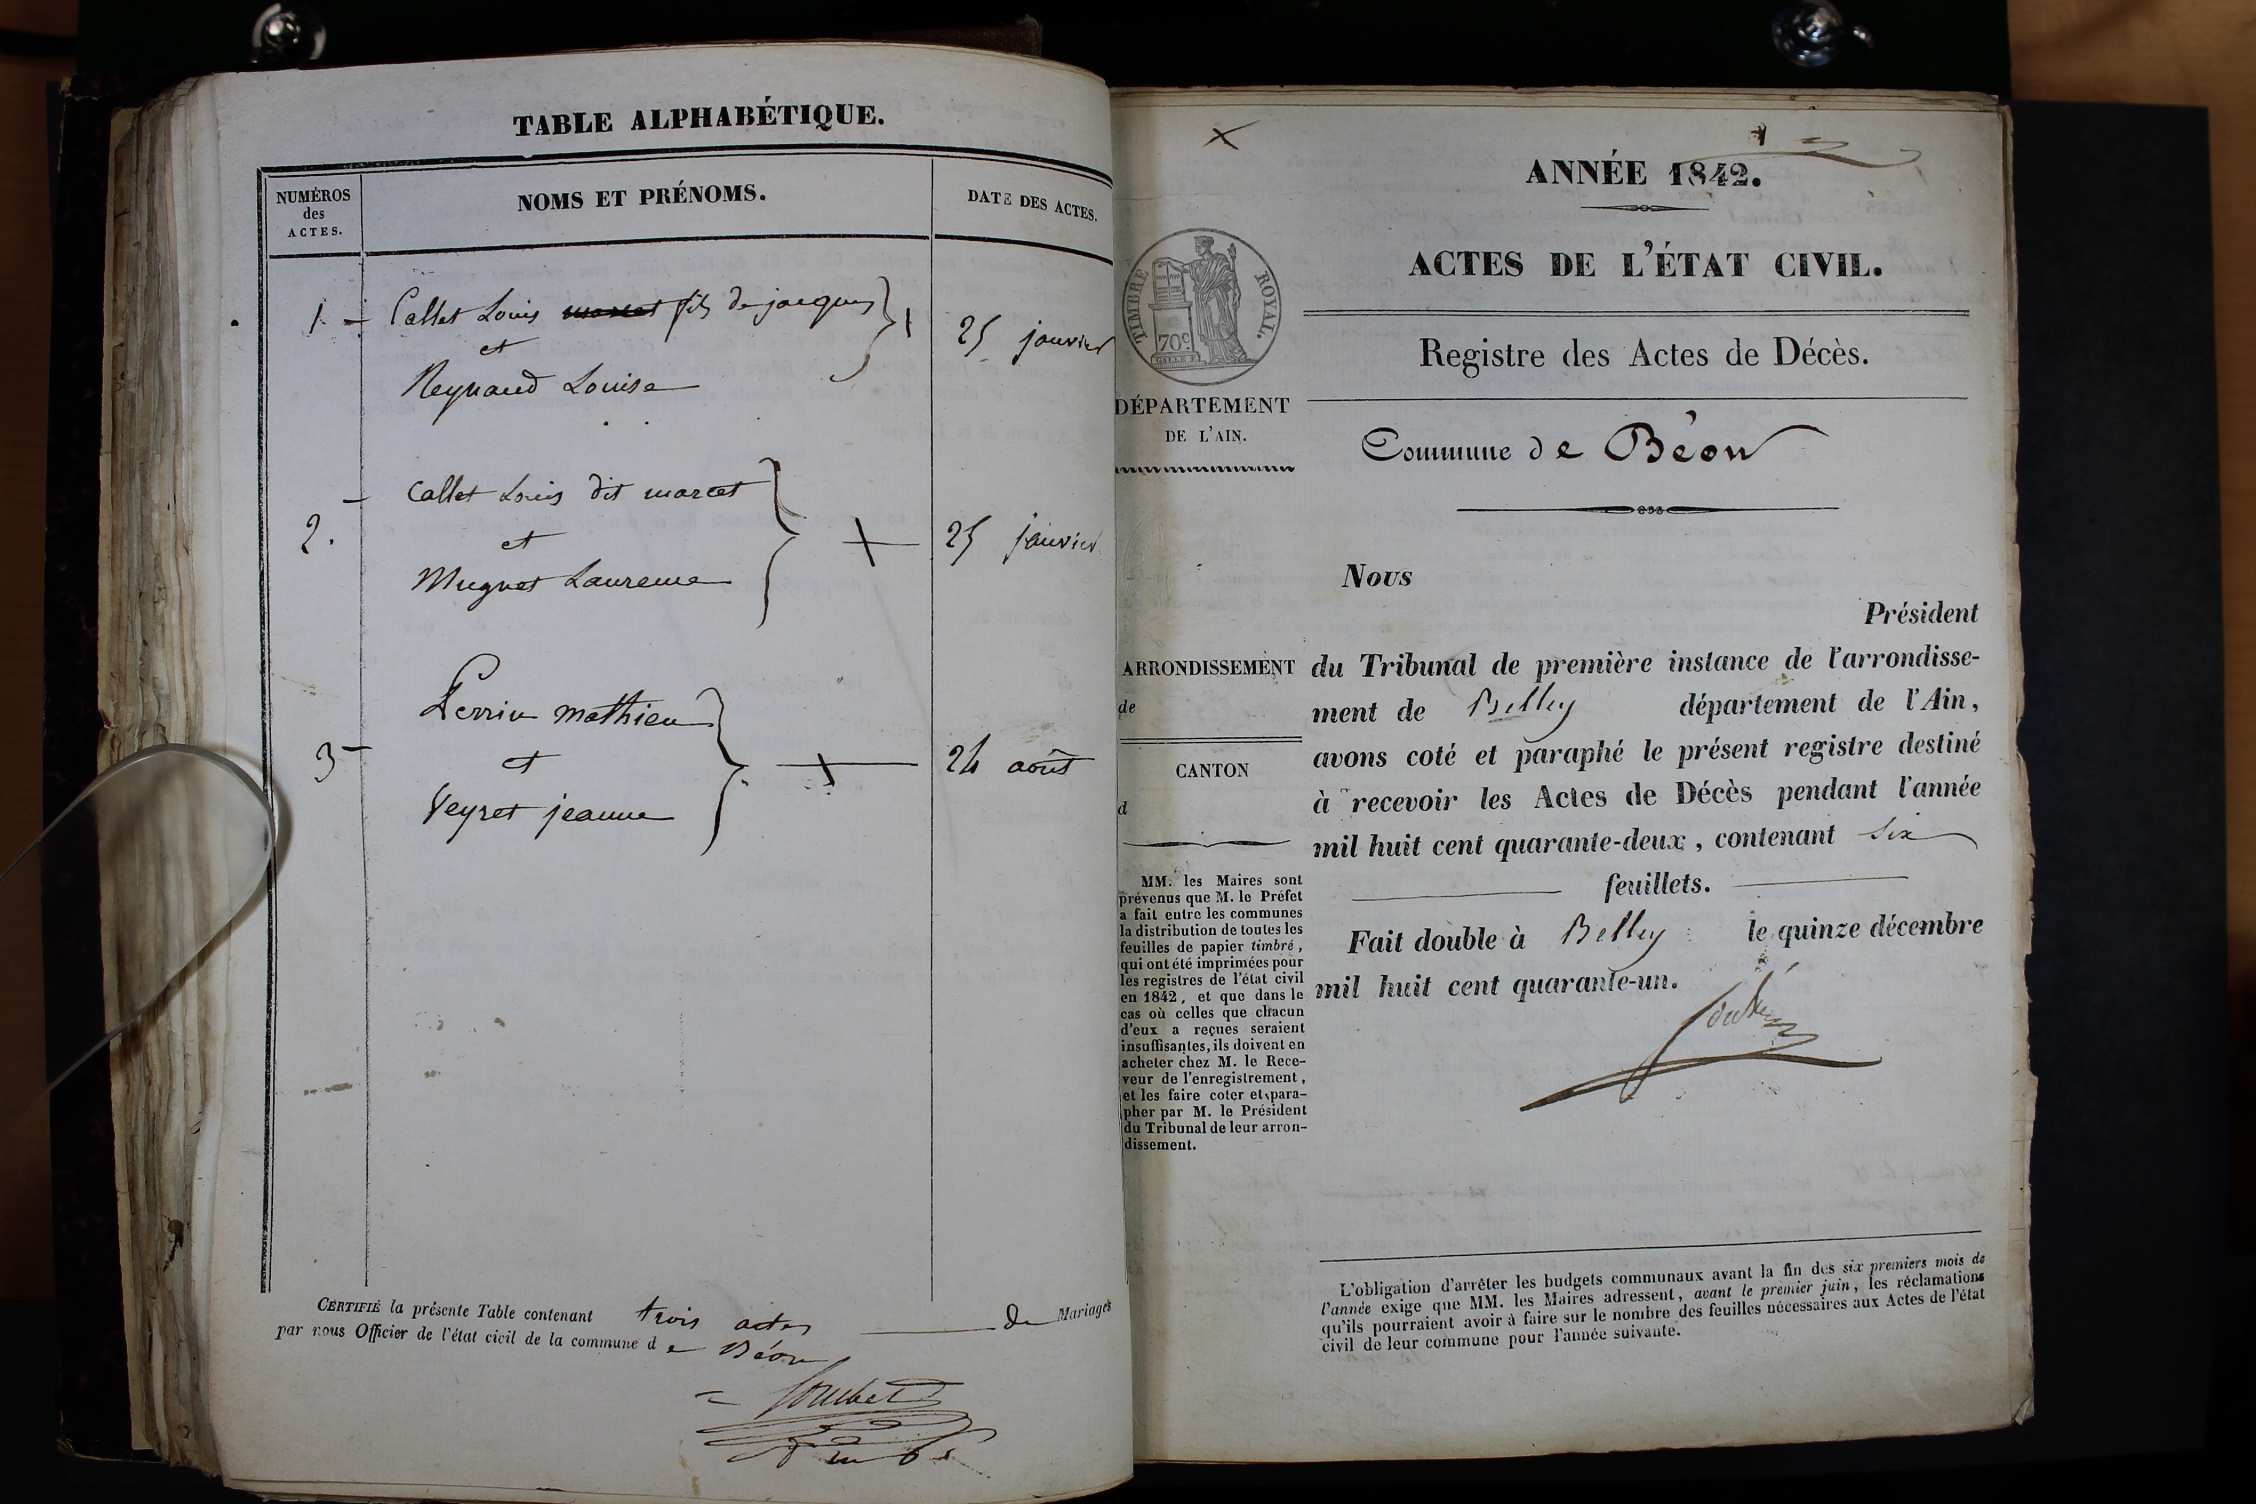 TABLE ALPHABÉTIQUE.
NUMÉROS
des
ACTES.
NOMS ET PRÉNOMS.
DATE DES ACTES.
1 - Callet Louis marcet fils de jacques 25 janvier
et
Reynaud Louise
2. Callet Louis dit marcet 25 janvier
et
Mugnet Laurence
3 Perrin mathieu 24 août
et
Veyret jeanne
CERTIFIÉ la présente Table contenant trois actes de Mariages
par nous Officier de l'état civil de la commune de Béon
ANNÉE 1842.
ACTES DE L'ÉTAT CIVIL.
TIMBRE ROYAL.
70c
Registre des Actes de Décès.
DÉPARTEMENT
DE L'AIN.
Commune de Béon
Nous
Président
ARRONDISSEMENT
de
CANTON
d
du Tribunal de première instance de l'arrondisse-
ment de Belley département de l'Ain,
avons coté et paraphé le présent registre destiné
à recevoir les Actes de Décès pendant l'année
mil huit cent quarante-deux, contenant six
feuillets.
Fait double à Belley le quinze décembre
mil huit cent quarante-un.
MM. les Maires sont
prévenus que M. le Préfet
a fait entre les communes
la distribution de toutes les
feuilles de papier timbré,
qui ont été imprimées pour
les registres de l'état civil
en 1842, et que dans le
cas où celles que chacun
d'eux a reçues seraient
insuffisantes, ils doivent en
acheter chez M. le Rece-
veur de l'enregistrement,
et les faire coter et para-
pher par M. le Président
du Tribunal de leur arron-
dissement.
L'obligation d'arrêter les budgets communaux avant la fin des six premiers mois de
l'année exige que MM. les Maires adressent, avant le premier juin, les réclamations
qu'ils pourraient avoir à faire sur le nombre des feuilles nécessaires aux Actes de l'état
civil de leur commune pour l'année suivante.